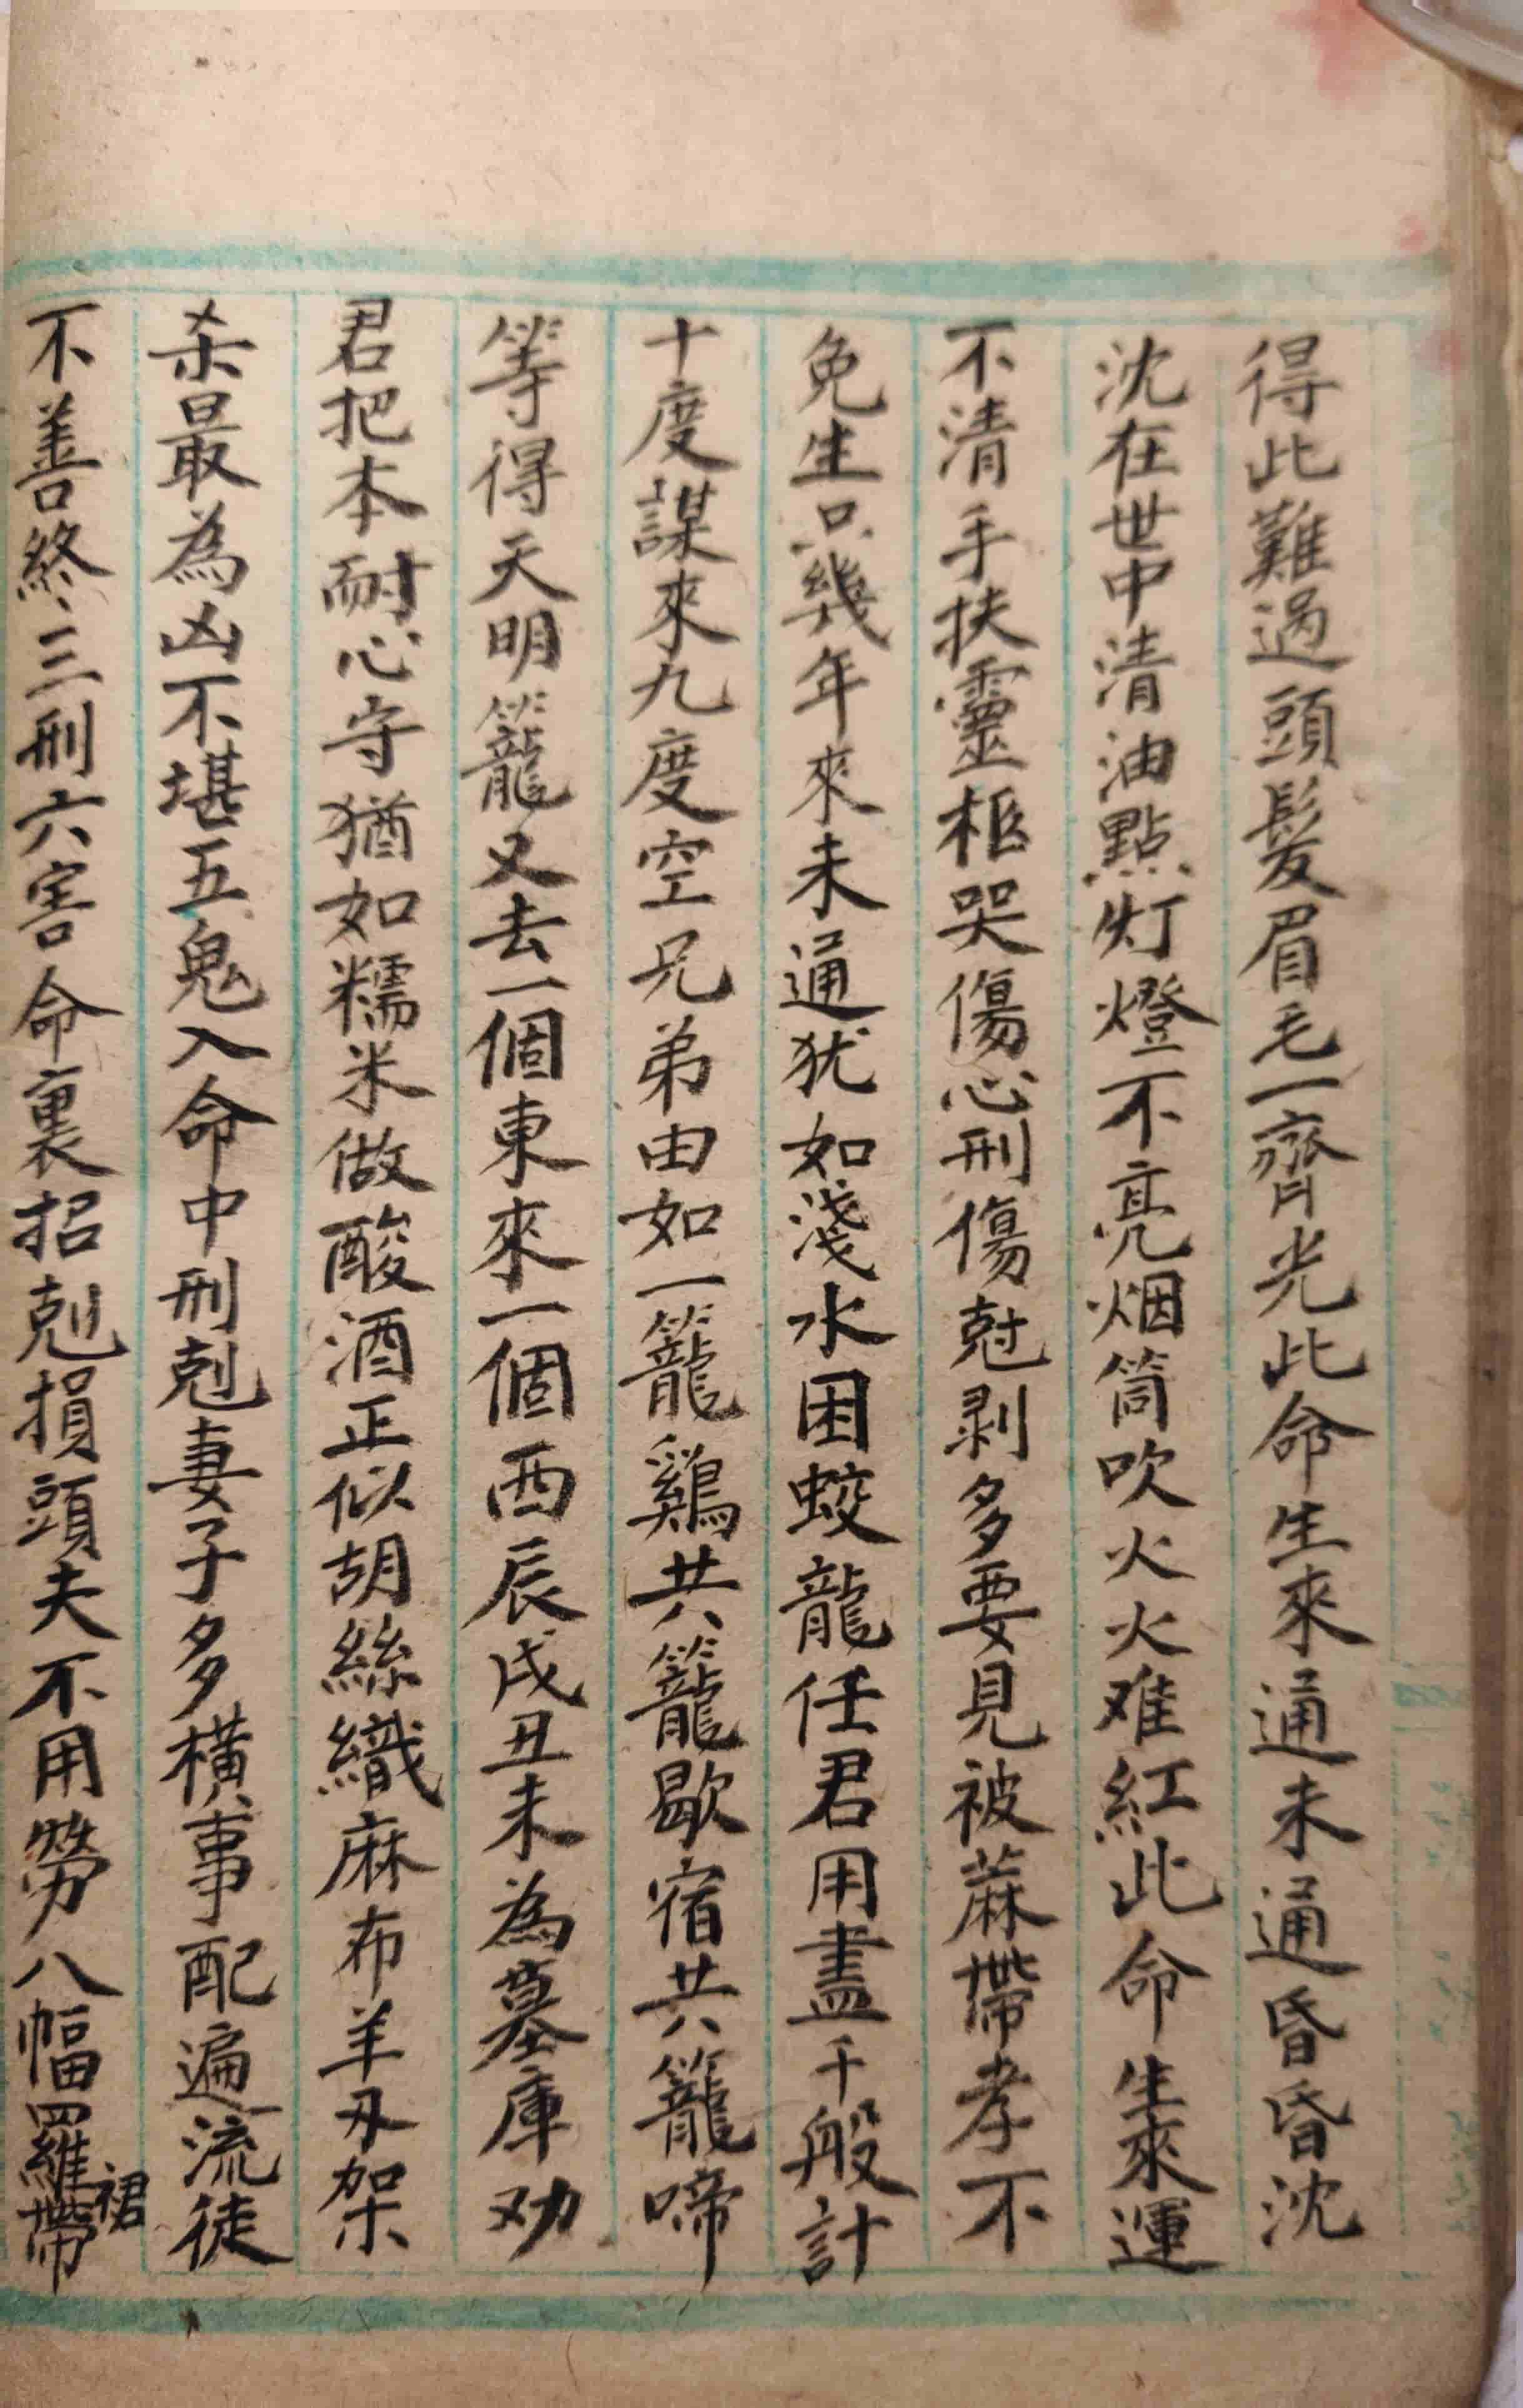 得此難過頭髮眉毛一齊光此命生來通未通昏昏沈
沈在世中清油點灯燈不亮烟筒吹火火难紅此命生來運
不清手扶靈柩哭傷心刑傷尅剥多要見被蔴帶孝不
免生只幾年來未通犹如淺水困蛟龍任君用盡千般計
十度謀來九度空兄弟由如一籠鷄共籠歇宿共籠啼
等得天明籠又去一個東來一個西辰戌丑未為墓庫劝
君把本耐心守猶如糯米做酸酒正似胡絲織麻布羊刃架
杀最為凶不堪五鬼入命中刑剋妻子多横事配遍流徒
不善終三刑六害命裏招剋損頭夫不用勞八幅羅裙帶